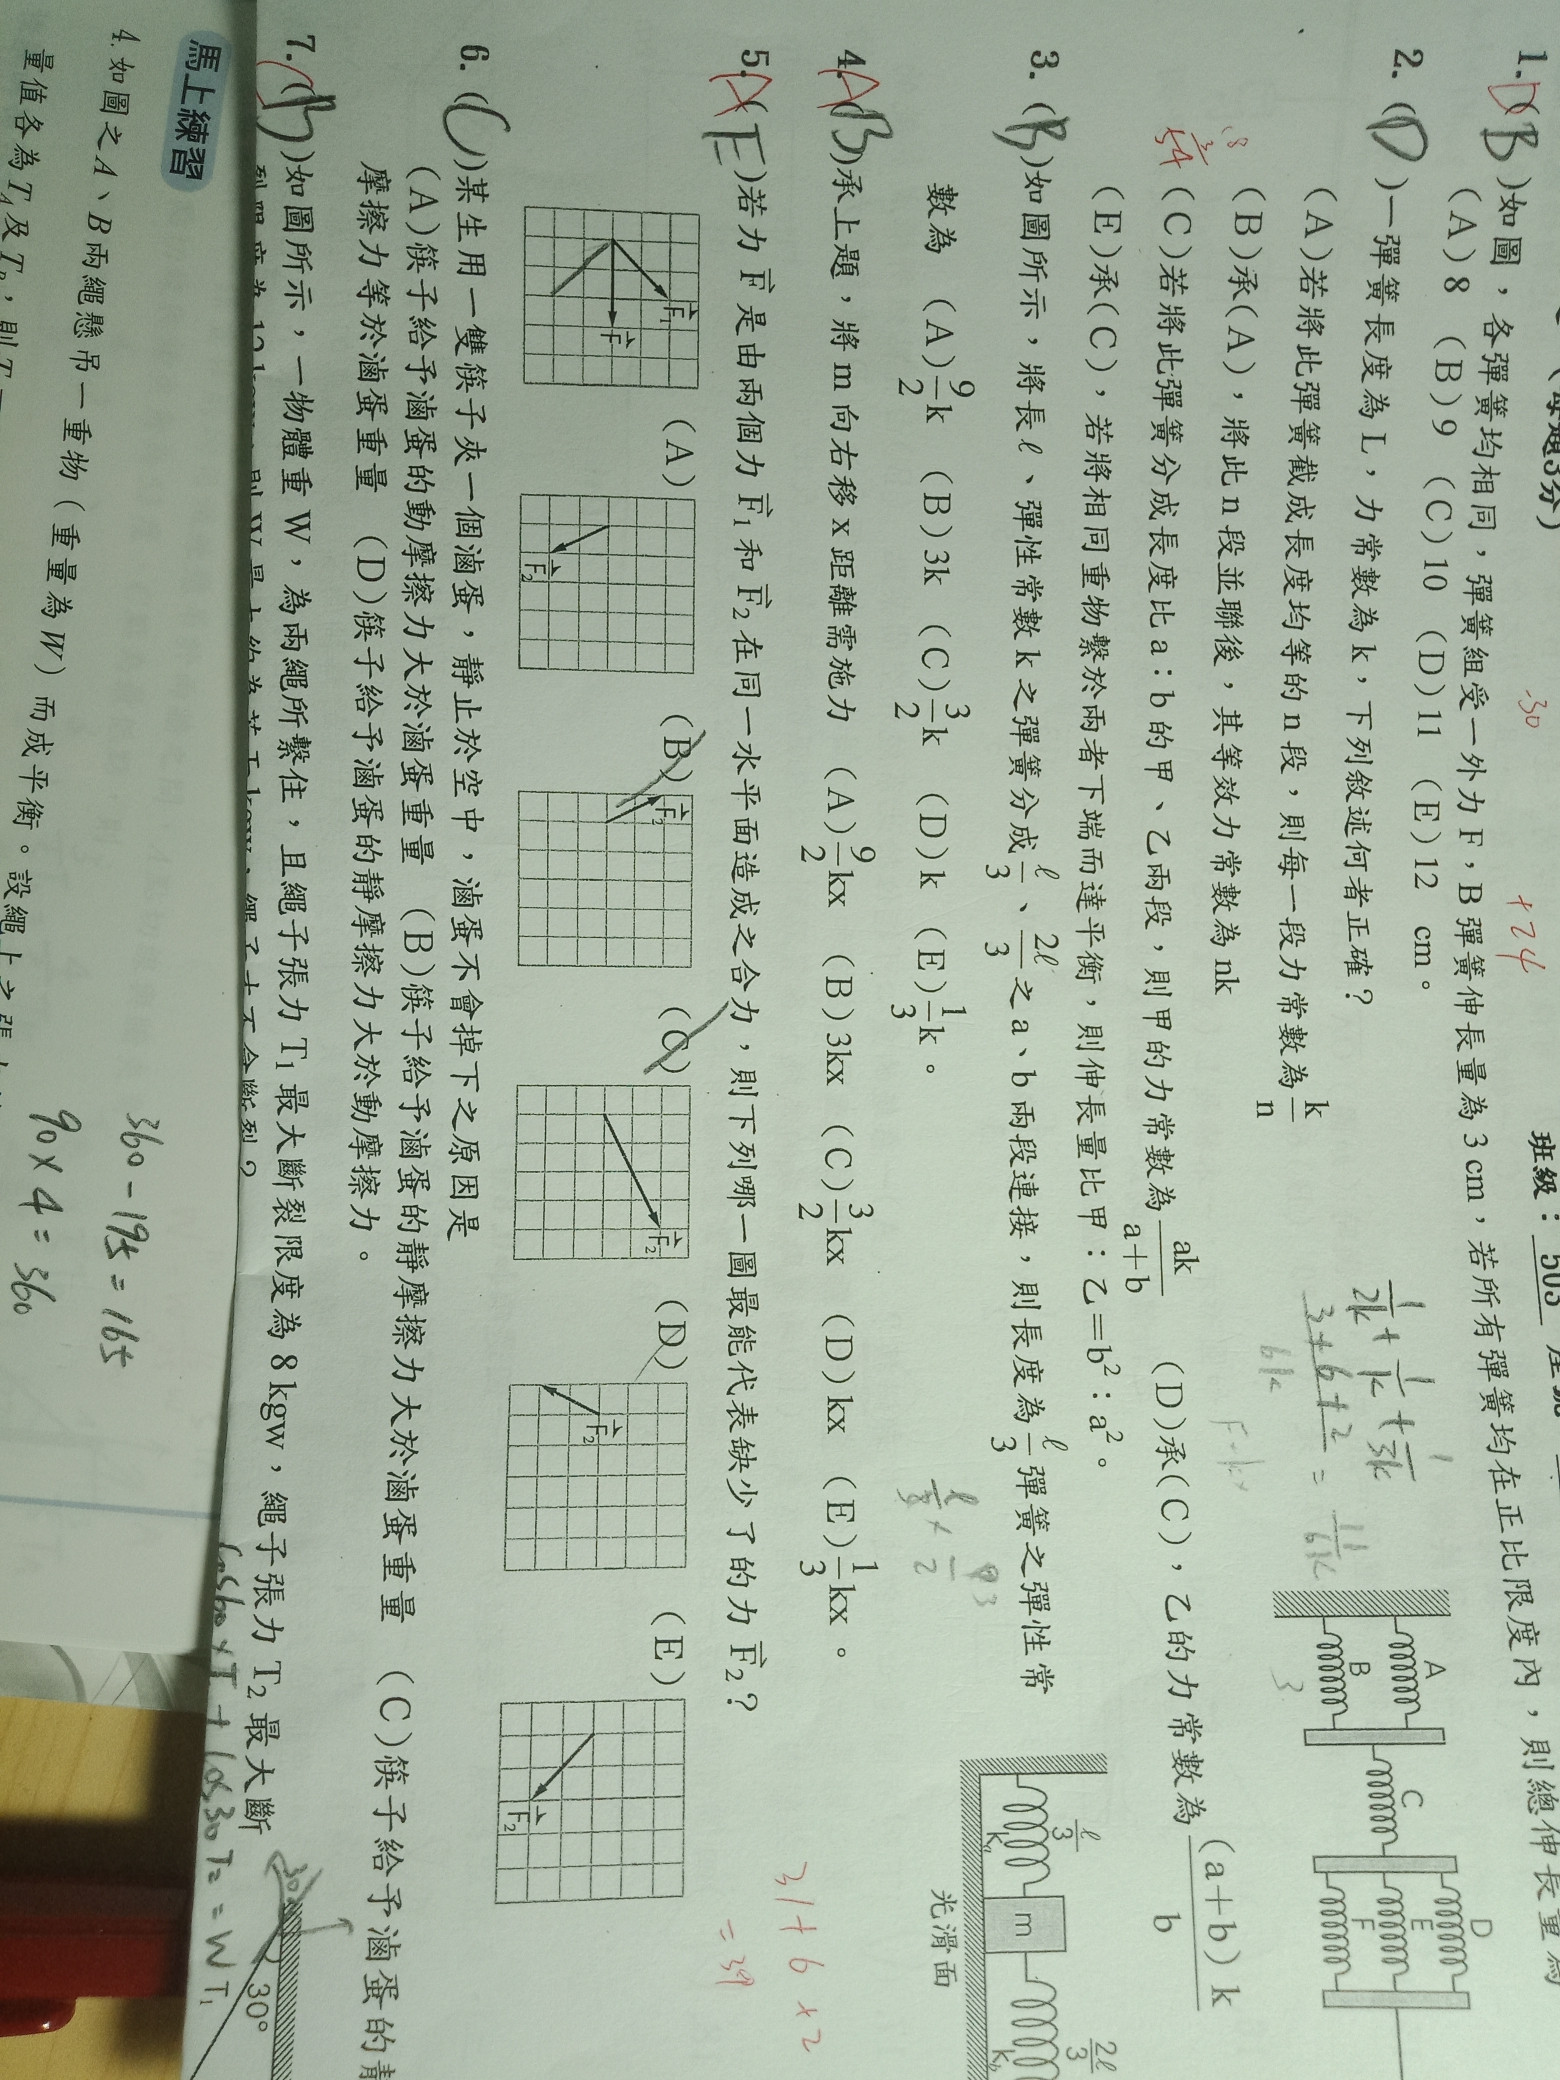 班級：503
(每題3分)
-30
+24
1. D (B)如圖，各彈簧均相同，彈簧組受一外力F，B彈簧伸長量為3 cm，若所有彈簧均在正比限度內，則總伸長量為
(A)8 (B)9 (C)10 (D)11 (E)12 cm。
2. (D)一彈簧長度為L，力常數為k，下列敘述何者正確？
(A)若將此彈簧截成長度均等的n段，則每一段力常數為k/n
(B)承(A)，將此n段並聯後，其等效力常數為nk
(C)若將此彈簧分成長度比a：b的甲、乙兩段，則甲的力常數為ak/(a+b) (D)承(C)，乙的力常數為(a+b)k/b
(E)承(C)，若將相同重物繫於兩者下端而達平衡，則伸長量比甲：乙＝b²：a²。
1/2k + 1/k + 1/3k
3+6+2/6k = 11/6k
3
A
B
C
D
E
F
3. (B)如圖所示，將長ℓ、彈性常數k之彈簧分成ℓ/3、2ℓ/3之a、b兩段連接，則長度為ℓ/3彈簧之彈性常
數為 (A)9/2k (B)3k (C)3/2k (D)k (E)1/3k。
ℓ/3
kₐ
m
2ℓ/3
k_b
光滑面
4. A (B)承上題，將m向右移x距離需施力 (A)9/2kx (B)3kx (C)3/2kx (D)kx (E)1/3kx。
31+6×2
=39
5. A (E)若力F⃗是由兩個力F⃗₁和F⃗₂在同一水平面造成之合力，則下列哪一圖最能代表缺少了的力F⃗₂？
F⃗₁
F⃗
(A)
F⃗₂
(B)
F⃗₂
(C)
F⃗₂
(D)
F⃗₂
(E)
F⃗₂
6. (C)某生用一雙筷子夾一個滷蛋，靜止於空中，滷蛋不會掉下之原因是
(A)筷子給予滷蛋的動摩擦力大於滷蛋重量 (B)筷子給予滷蛋的靜摩擦力大於滷蛋重量 (C)筷子給予滷蛋的靜
摩擦力等於滷蛋重量 (D)筷子給予滷蛋的靜摩擦力大於動摩擦力。
7. (B)如圖所示，一物體重W，為兩繩所繫住，且繩子張力T₁最大斷裂限度為8 kgw，繩子張力T₂最大斷
30°
T₁
cos60×T₁+cos30T₂=W
馬上練習
4. 如圖之A、B兩繩懸吊一重物（重量為W）而成平衡。設繩上之張力
360-195=165
90×4=360